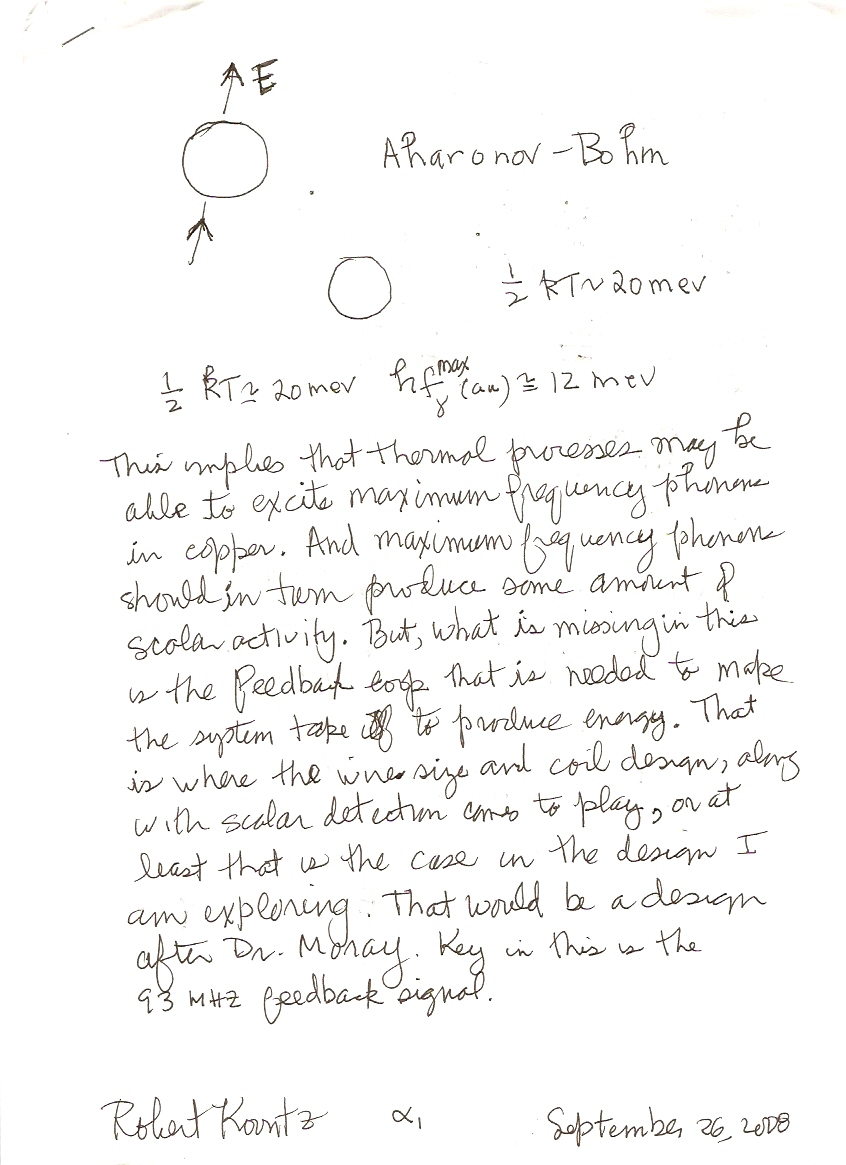 E
Aharonov-Bohm
1/2 kT ~ 20 mev
1/2 kT ≃ 20 mev hf γ max (au) ≅ 12 mev
This implies that thermal processes may be
able to excite maximum frequency phonons
in copper. And maximum frequency phonons
should in turn produce some amount of
scalar activity. But, what is missing in this
is the feedback loop that is needed to make
the system take off to produce energy. That
is where the wire size and coil design, along
with scalar detection comes to play, or at
least that is the case in the design I
am exploring. That would be a design
after Dr. Moray. Key in this is the
93 MHZ feedback signal.
Robert Koontz α1 September 26, 2008